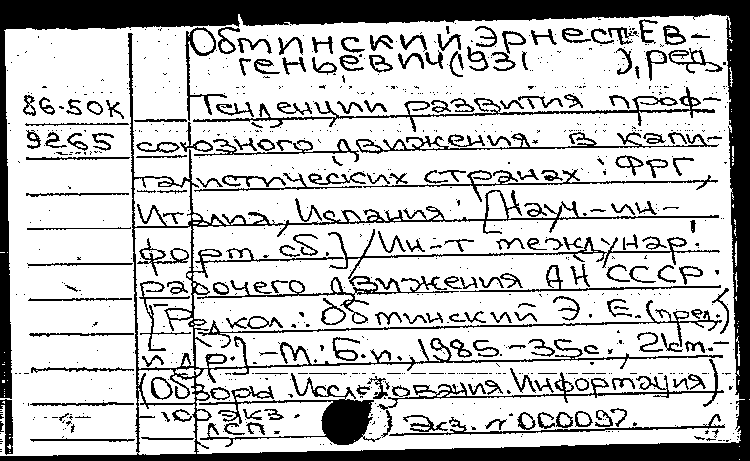 Обминский, Эрнест Ев-
геньевич (1931 ), ред.
86-50К Тенденции развития проф-
9265 союзного движения в капи-
талистических странах: ФРГ,
Италия, Испания: [Науч.-ин-
форм. сб.] / Ин-т междунар.
рабочего движения АН СССР.
[Редкол.: Обминский Э. Е. (пред.)
и др.] - М.: Б.и., 1985. - 35с.; 21см. -
(Обзоры. Исследования. Информация).
- 100 экз.
ДСП. Экз. № 000097.